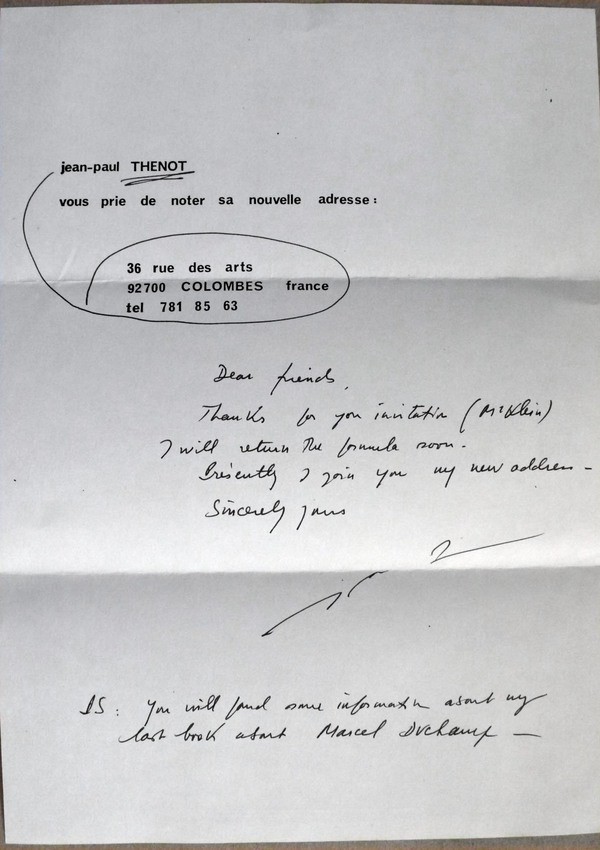 jean-paul THENOT
vous prie de noter sa nouvelle adresse :
36 rue des arts
92700 COLOMBES france
tel 781 85 63
Dear friends,
Thanks for you invitation (Mc Klein)
I will return the formula soon.
Presently I join you my new address -
Sincerely yours
PS : You will find some information about my
last book about Marcel Duchamp -